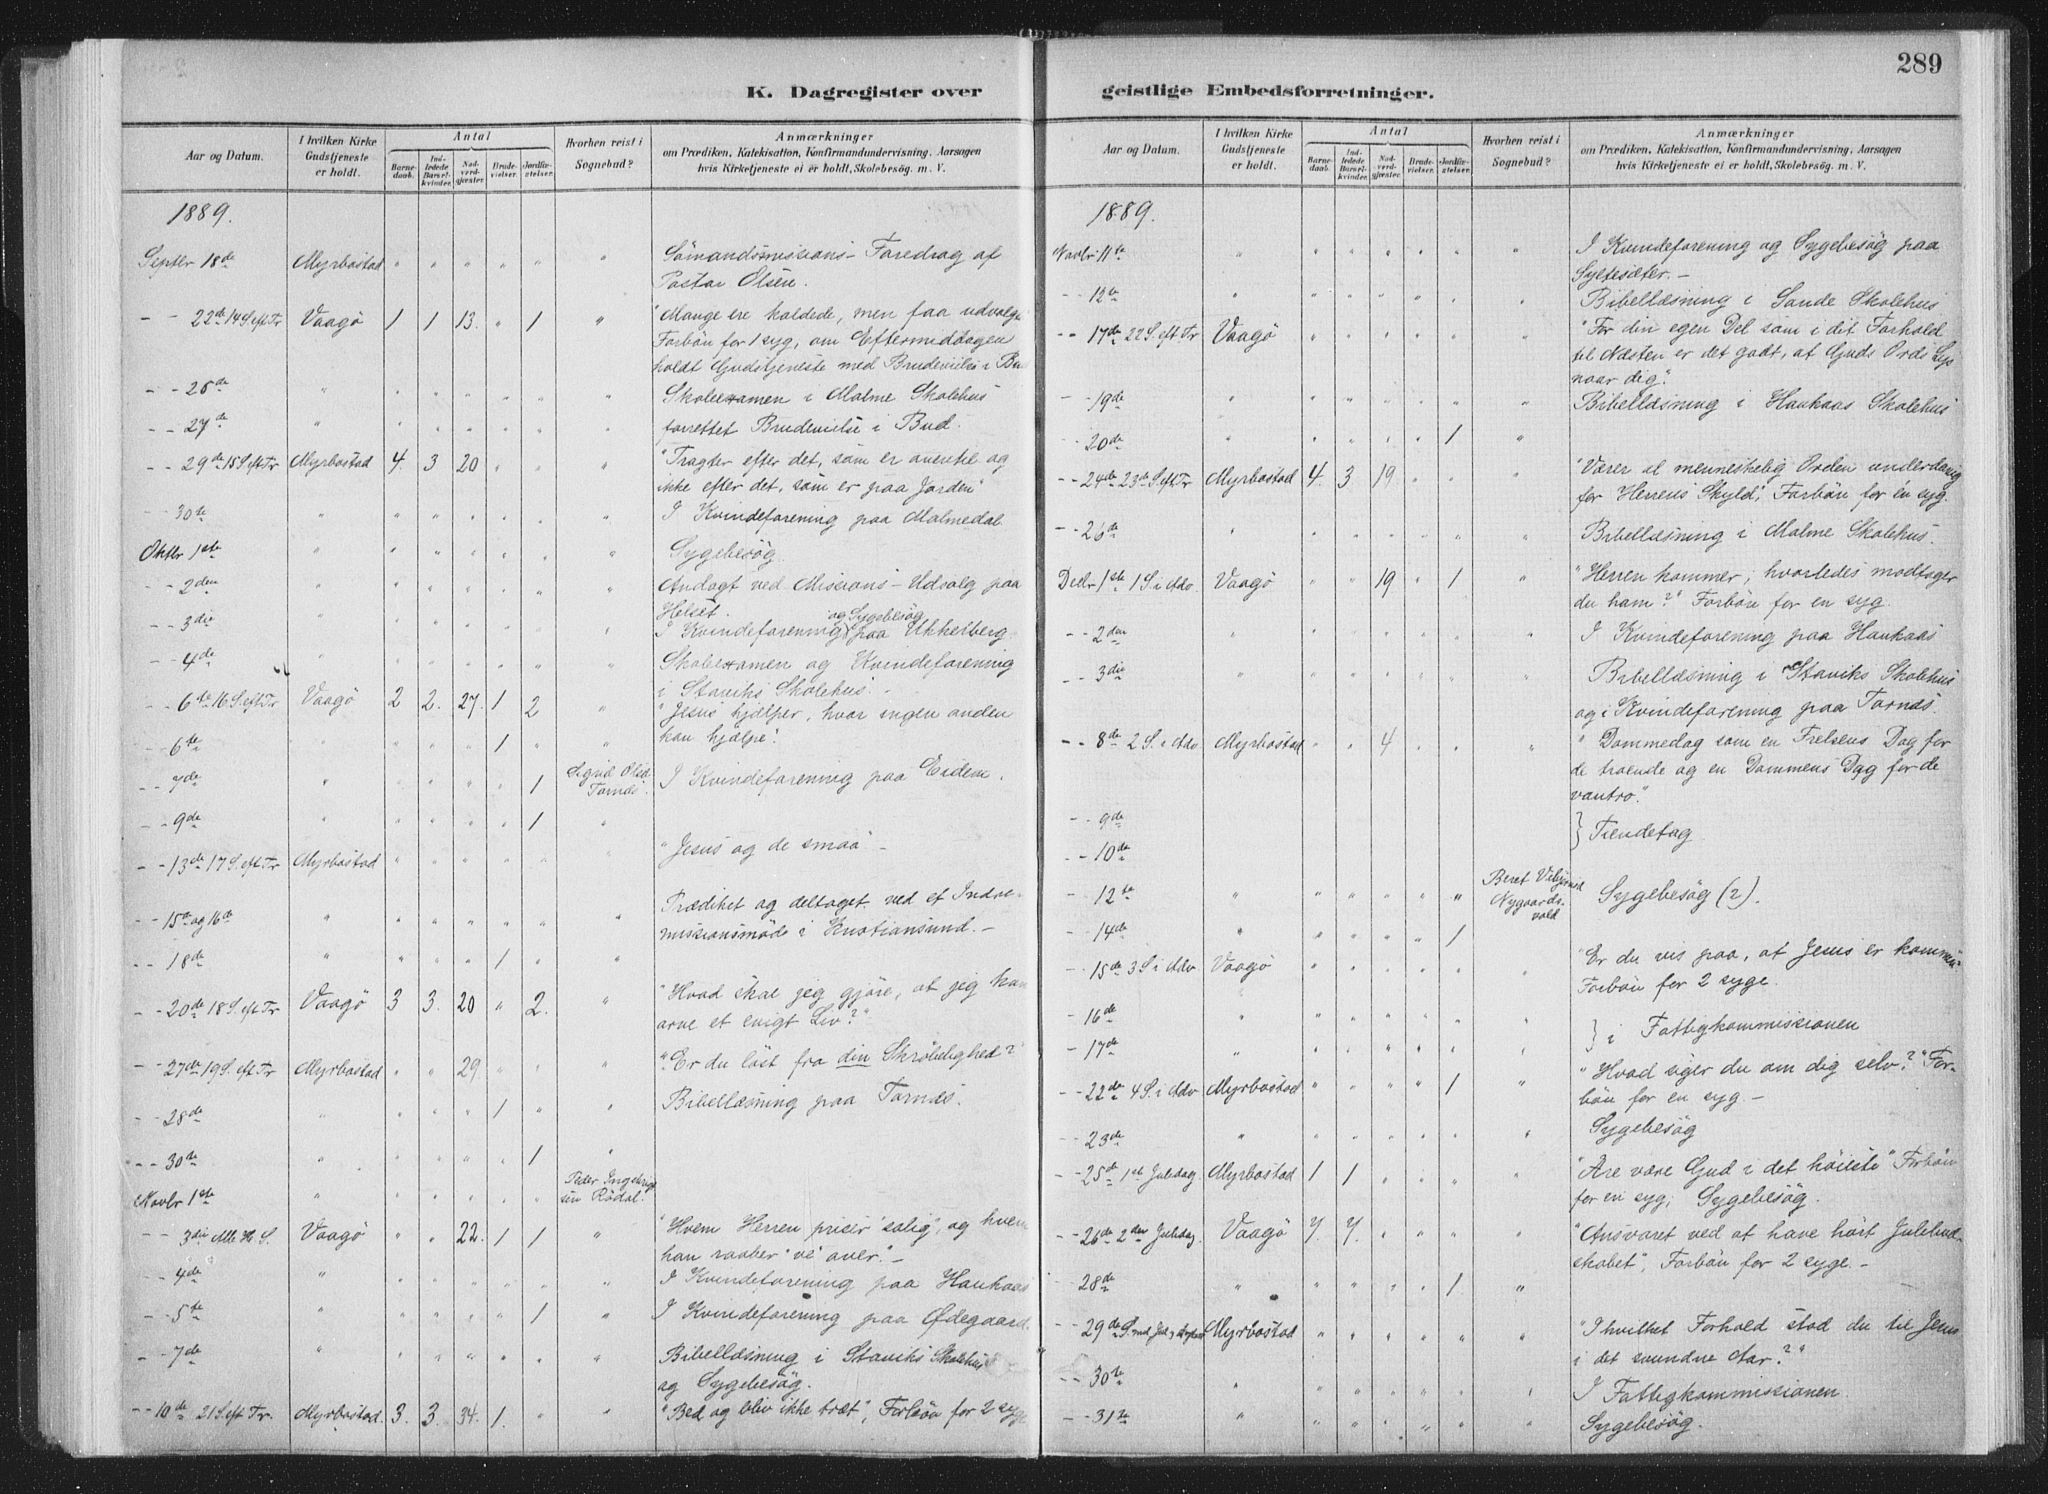 289
K. Dagregister over
Aar og Datum.
I hvilken Kirke Gudstjeneste er holdt.
Antal
Barnedaab.
Indledede Barselkvinder.
Nadverdgjæster.
Brudevielser.
Jordfæstelser.
Hvorhen reist i Sognebud?
Anmærkninger
om Prædiken, Katekisation, Konfirmandundervisning, Aarsagen
hvis Kirketjeneste ei er holdt, Skolebesøg. m. V.
1889.
Septbr 18de Myrbostad " " " " " " Sömandsmissions-Foredrag af
Pastor Olsen.
- - 22de 14 S. eft Tr Vaagö 1 1 13. " 1 " "Mange ere kaldede, men faa udvalgte
Forbön for 1 syg, om Eftermiddagen
holdt Gudstjeneste med Brudevielse i Bud
- - 25de " " " " " " " Skoleexamen i Malme Skolehus
- - 27de " " " " " " " forrettet Brudevielse i Bud.
- - 29de 15 S. eft Tr Myrbostad 4. 3 20 " " " "Tragter efter det, som er oventil og
ikke efter det, som er paa Jorden"
- - 30te " " " " " " " I Kvindeforening paa Malmedal
Oktbr 1ste " " " " " " " Sygebesög
- - 2den " " " " " " " Andagt ved Missions-Udsalg paa
Helset.
og Sygebesög
- - 3die " " " " " " " I Kvindeforening paa Ukkelberg
- - 4de " " " " " " " Skoleexamen og Kvindeforening
i Staviks Skolehus. -
- - 6te 16 S. eft Tr Vaagö 2 2. 27. 1 2 " "Jesus hjælper, hvor ingen anden
kan hjælpe".
- - 6te " " " " 1 " "
- - 7de " " " " " 1 Sigrid Olsd. Tornæs. I Kvindeforening paa Eidem.
- - 9de " " " " " 1 "
- - 13de 17 S. eft Tr Myrbostad " " " " " " "Jesus og de smaa" -
- - 15de og 16de " " " " " " " Prædiket og deltaget ved et Indre-
missionsmöde i Kristiansund. -
- - 18de " " " " 1 " "
- - 20de 18 S. eft Tr Vaagö 3 3. 20 " 2. " "Hvad skal jeg gjöre, at jeg kan
arve et evigt Liv?"
- - 27de 19 S. eft Tr Myrbostad " " 29. " " " "Er du löst fra din Skröbelighed?"
- - 28de " " " " 1 " " Bibellæsning paa Tornæs.
- - 30te " " " " " 1 "
Novbr 1ste " " " " " " Peder Ingebrigtsen Rödal.
- - 3die Alle H. S. Vaagö " " 22. 1 1 " "Hvem Herren priser "salig", og hvem
han raaber "ve" over." -
- - 4de " " " " " " " I Kvindeforening paa Haukaas
- - 5te " " " " " 1 " I Kvindeforening paa Ødegaard
- - 7de " " " " " " " Bibellæsning i Staviks Skolehus
og Sygebesög.
- - 10de 21 S. eft Tr. Myrbostad. 3. 3. 34. 1. " " "Bed og bliv ikke træt", Forbön for 2 syge
geistlige Embedsforretninger.
Aar og Datum.
I hvilken Kirke Gudstjeneste er holdt.
Antal
Barnedaab.
Indledede Barselkvinder.
Nadverdgjæster.
Brudevielser.
Jordfæstelser.
Hvorhen reist i Sognebud?
Anmærkninger
om Prædiken, Katekisation, Konfirmandundervisning, Aarsagen
hvis Kirketjeneste ei er holdt, Skolebesøg. m. V.
1889.
Novbr 11te " " " " " " " I Kvindeforening og Sygebesög paa
Syltesæter. -
- - 12te " " " " " " " Bibellæsning i Sande Skolehus
- - 17de 22 S. eft Tr Vaagö " " " " " " "For din egen Del som i dit Forhold
til Næsten er det godt, at Guds Ords Lys
naar dig".
- - 19de " " " " " " " Bibellæsning i Haukaas Skolehus
- - 20de " " " " 1 "
- - 24de 23de S. eft Tr Myrbostad 4. 3 19 " " " "Værer al menneskelig Orden underdanig
for Herrens Skyld", Forbön for én syg.
- - 26de " " " " " " " Bibellæsning i Malme Skolehus.
Decbr 1ste 1 S. i Adv. Vaagö " " 19 " 1 " "Herren kommer; hvorledes modtager
du ham?" Forbön for en syg.
- - 2den " " " " " " " I Kvindeforening paa Haukaas
- - 3die " " " " " " " Bibellæsning i Staviks Skolehus
og i Kvindeforening paa Tornæs.
- - 8de 2 S. i Adv Myrbostad " " 4 " " " "Dommedag som en Frelsens Dag for
de troende og en Dommens Dag for de
vantro."
- - 9de
- - 10de } Tiendetag
- - 12te " " " " " " Beret Nygaardsvold Sygebesög (2).
- - 14de " " " " " 1
- - 15de 3 S. i Adv Vaagö " " " " " " "Er du vis paa, at Jesus er kommen"
Forbön for 2 syge.
- - 16de " " " " " " "
- - 17de " " " " " " " } i Fattigkommissionen
- - 22de 4 S. i Adv Myrbostad " " " " 1 " "Hvad siger du om dig selv?" For-
bön for en syg -
- - 23de " " " " " " " Sygebesög
- - 25de 1ste Juledag. Myrbostad 1 1 " " " " "Ære være Gud i det höieste" Forbön
for en syg; Sygebesög.
- - 26de 2den Juledag. Vaagö 7. 7. " " " " "Ansvaret ved at have hört Julebud-
skabet", Forbön for 2 syge. -
- - 28de " " " " " 1. "
- - 29de S. Myrbostad " " " " " " "I hvilket Forhold stod du til Jesus
i det svundne Aar?"
- - 30te " " " " " " " I Fattigkommissionen.
- - 31te " " " " " " " Sygebesög.